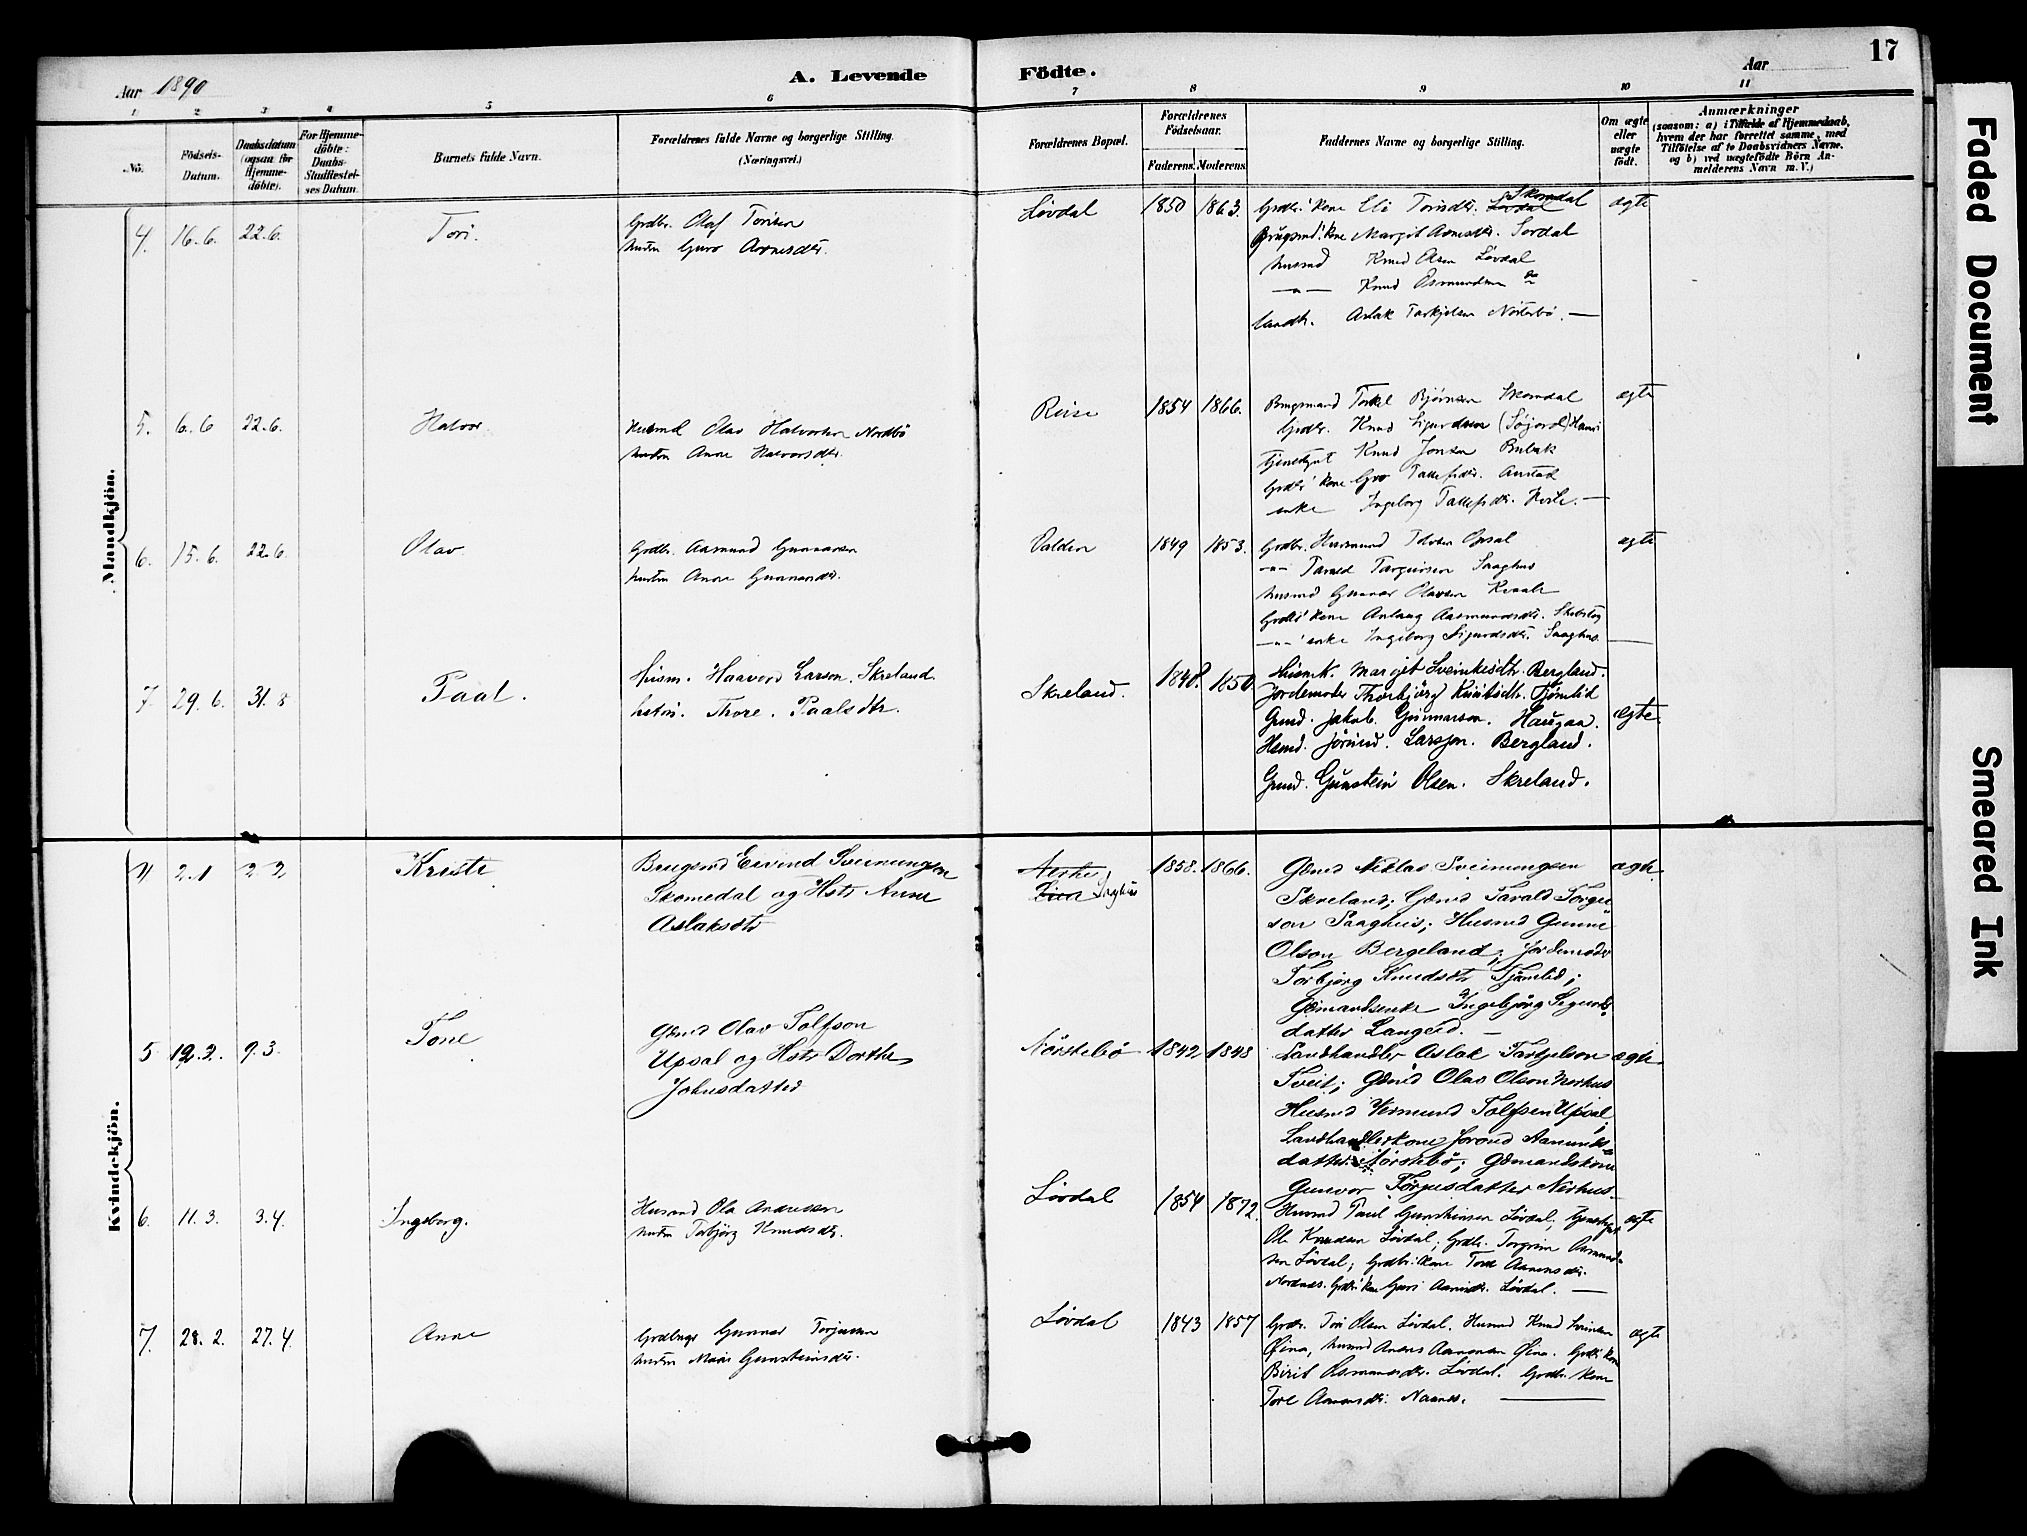 17
Aar 1890
A. Levende Födte.
Aar
1 2 3 4 5 6 7 8 9 10 11
No.
Födsels-Datum.
Daabsdatum (ogsaa for Hjemme-döbte).
For Hjemme-döbte: Daabs-Stadfæstel-ses Datum.
Barnets fulde Navn.
Forældrenes fulde Navne og borgerlige Stilling.
(Næringsvei.)
Forældrenes Bopæl.
Forældrenes Födselsaar.
Faderens. Moderens.
Faddernes Navne og borgerlige Stilling.
Om ægte eller uægte födt.
Anmærkninger
(saasom: a) i Tilfælde af Hjemmedaab, hvem der har forrettet samme, med Tilföielse af to Daabsvidners Navne. og b) ved uægtefödte Börn An-melderens Navn m. V.)
Mandkjön.
4. 16.6. 22.6. Tori.
Grdbr. Olaf Torisen
hustru Guro Aanesdtr.
Løvdal 1850 1863.
Grdbr.' kone Eli Torisdtr. Løvdal Skomdal
Brugsmd.' kone Margit
husmd Knud Olsen Løvdal
— " — Knud Osmundsen do
landh. Aslak Tarkjelsen Nörstebö. —
ægte
5. 6.6 22.6. Halvor
Husmd Olav Halvorsen Nordbö
hustru Anne Halvorsdtr.
1854 1866.
Brugsmand Torkel Bjørnsen Skomdal
Grdbr. Knud Sigurdsen
Tjenestgut Knud Jonsen
Grdbr' kone Gro
enke Ingeborg —
ægte
6. 15.6. 22.6. Olav
Grdbr. Aasmund Gunnarsen
hustru Anne Gunnarsdtr.
1849 1853.
Grdbr.
— " — Tarald Targeirsen Saaghus
husmd Gunnar Olavsen
Grdbr' kone Aslaug Aasmundsdtr.
— " —' enke Ingeborg Sigurdsdtr. Saaghus.
ægte
7. 29.6. 31.8 Paal.
Husm. Haavord Larson. Skreland
hstru. Thore. Paalsdtr.
Skreland. 1848. 1850
Husmk. Margit Sveinkesdtr. Bergland.
Jordemoder Thorbjörg Knutsdtr. Tjömlid
Grmd. Jakob. Gunnarson. Haugaa.
Hsmd. Jörund. Larsson. Bergland.
Grmd. Gunstein Olsen. Skreland.
ægte.
Kvindekjön.
4 2.1 2.2 Kristi
Brugsmd Eivind Sveinungson
Skomedal og Hstr Anne
Aslaksdtr
Saghus 1858. 1866.
Gdmd Niklas Sveinungsen
Skreland; Gdmd Tarald Torgei
son Saaghus; Husmd Gunne
Olson Bergeland; Jordemoder
Torbjörg Knudsdtr Tjömlid;
Gdmandsenke Ingebjörg Sigurds-
datter Langeid. —
ægte.
5 12.2. 9.3. Tone
Gdmd Olav Tolfson
Upsal og Hstr Dorthe
Johnsdatter
Nörstebö 1842 1848
Landhandler Aslak Tarkjelson
Tveit; Gdmd Olav Olson Nerhus
Husmd Vermund Tolfsen Upsal;
Landhandlerkone Jorond Aamunds-
datter Nörstebö; Gdmandskone
Gunvor Torjusdatter Nerhus.
ægte.
6. 11.3. 3.4. Ingeborg.
Husmd Ola Andressen
hustru Torbjörg Knudsdtr.
Løvdal 1854 1872.
Husmd Paul Gunsteinsen Løvdal, tjenestgut
Ole Knudsen Løvdal; Grdbr. Torgrim Osmund-
sen Løvdal; Grdbr.' kone Tore Aanensdtr.
Grdbr' kone Guri Løvdal. —
ægte
7. 28.2. 27.4. Anne
Grdbrugr Gunnar Torjussen
hustru Mari Gunsteinsdtr.
Løvdal 1843 1857
Grdbr. Tori Olsen Løvdal. Husmd Knud Sveinsen
Øina, husmd Anens Aanensen Øina. Grdbr' kone
Birit Osmundsdtr. Løvdal. Grdbr. kone
Tore Aanensdtr. —
ægte
Faded Document
Smeared Ink